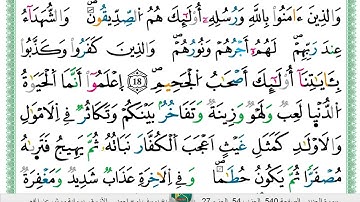 وَالذِينَ ءَامَنُوا بِاللَّهِ وَرُسُلِهِۦٓ أُوْلَٰٓئِكَ هُمُ الصِّدِّيقُونَ وَالشُّهَدَآءُ
عِندَ رَبِّهِمْ لَهُمُۥٓ أَجْرُهُمْ وَنُورُهُمْ وَالذِينَ كَفَرُوا وَكَذَّبُوا
بِـَٔايَٰتِنَآ أُوْلَٰٓئِكَ أَصْحَٰبُ الْجَحِيمِ 18 اِعْلَمُوٓا أَنَّمَا الْحَيَوٰةُ
الدُّنْيَا لَعِبٌ وَلَهْوٌ وَزِينَةٌ وَتَفَاخُرٌ بَيْنَكُمْ وَتَكَاثُرٌ فِي الَامْوَٰلِ
وَالَاوْلَٰدِ كَمَثَلِ غَيْثٍ أَعْجَبَ الْكُفَّارَ نَبَاتُهُۥ ثُمَّ يَهِيجُ فَتَرَىٰهُ
مُصْفَرًّا ثُمَّ يَكُونُ حُطَٰمًا وَفِي الَاخِرَةِ عَذَابٌ شَدِيدٌ وَمَغْفِرَةٌ
الصفحة 540 الحزب 54 الجزء 27